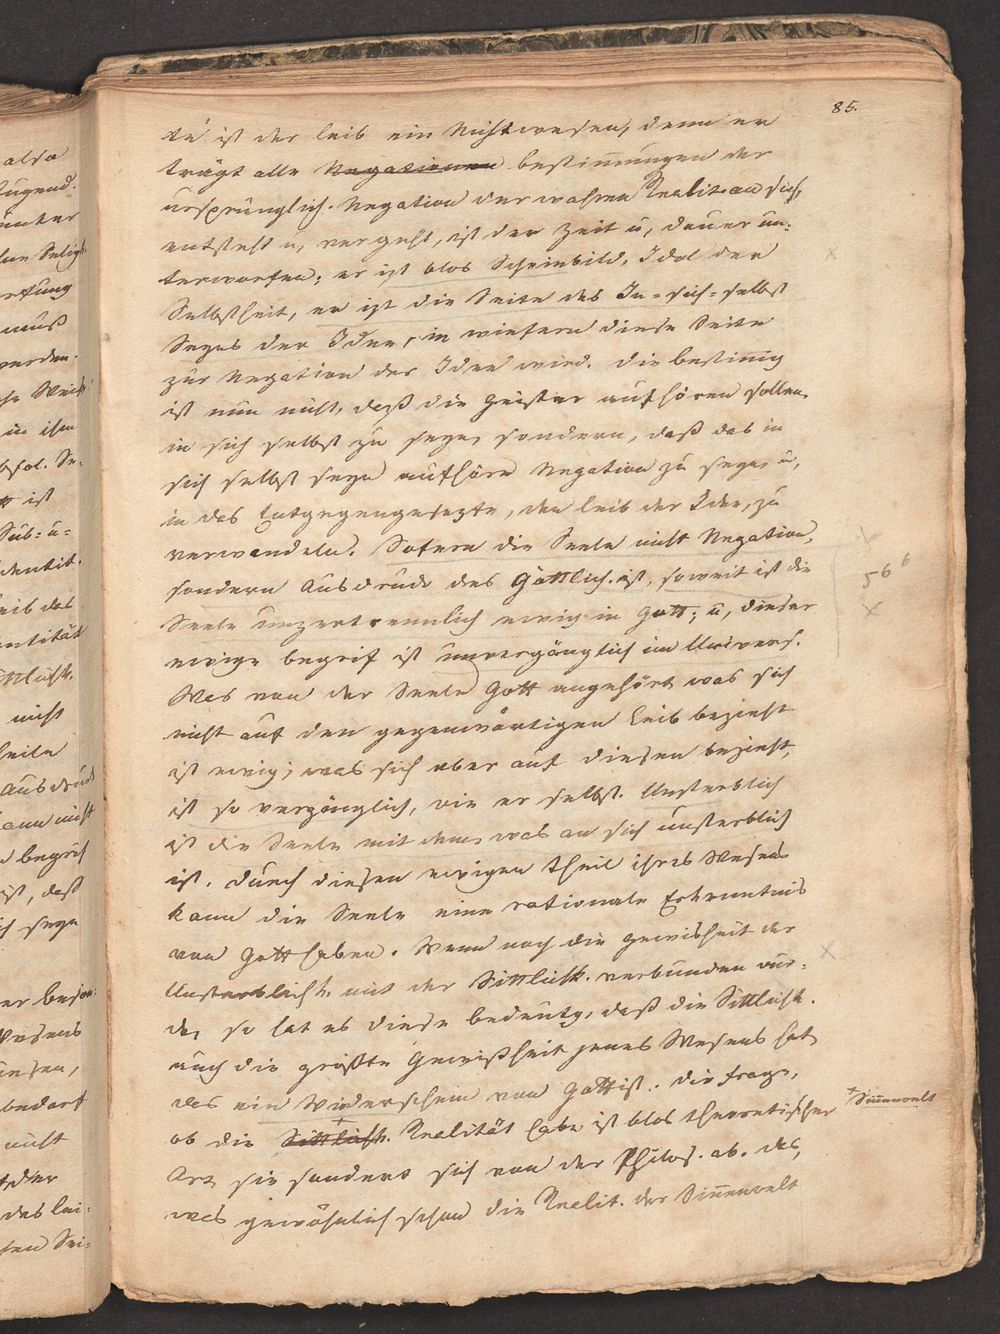 85.
te' ist der Leib ein Nichtwesen, denn er
trägt alle Negationen bestimmungen der
ursprünglich. Negation der wahren Realit. an sich,
entsteht u, vergeht, ist der Zeit u, dauer un-
terworfen; er ist blos Scheinbild, Idol der
Selbstheit, er ist die Seite des In-sich-selbst
Seyns der Idee, in wiefern diese Seite
zur Negation der Idee wird. die bestimg
ist nun nicht, daß die Geister aufhören sollen,
in sich selbst zu seyn, sondern, daß das in
sich selbst seyn aufhöre Negation zu seyn, u,
in das Entgegengesezte, den Leib der Idee, zu
verwandeln. Sofern die Seele nicht Negation,
sondern Ausdruck des Göttlich. ist, soweit ist die
Seele unzertrennlich ewig in Gott; u, dieser
ewige begrif ist unvergänglich im Univers.
Was von der Seele Gott angehört, was sich
nicht auf den gegenwärtigen Leib bezieht
ist ewig; was sich aber auf diesen bezieht,
ist so vergänglich, wie er selbst. Unsterblich
ist die Seele mit dem, was an sich unsterblich
ist. durch diesen ewigen Theil ihres Wesens
kann die Seele eine rationale Erkenntnis
von Gott haben. Wenn noch die gewisheit der
Unsterblichk. mit der Sittlichk. verbunden wur-
de, so hat es diese bedeutg, daß die Sittlichk.
auch die größte Gewißheit jenes Wesens hat,
das ein Wiederschein von Gott ist. die frage,
ob die Sittlichk. Realität habe, ist blos theoretischer
+ Sinnenwelt
Art, sie sondert sich von der Philos. ab. das,
was gewöhnlich schon die Realit. der Sinnenwelt
566
also
Tugend.
unter
Selig-
nuß
werden.
in ihm
absol. Se-
ist
Sub- u-
identit.
Leib des
entität
nicht
Ausdruck
kann nicht
begrif
ist, daß
seyn
Wesens
bedarf
nicht